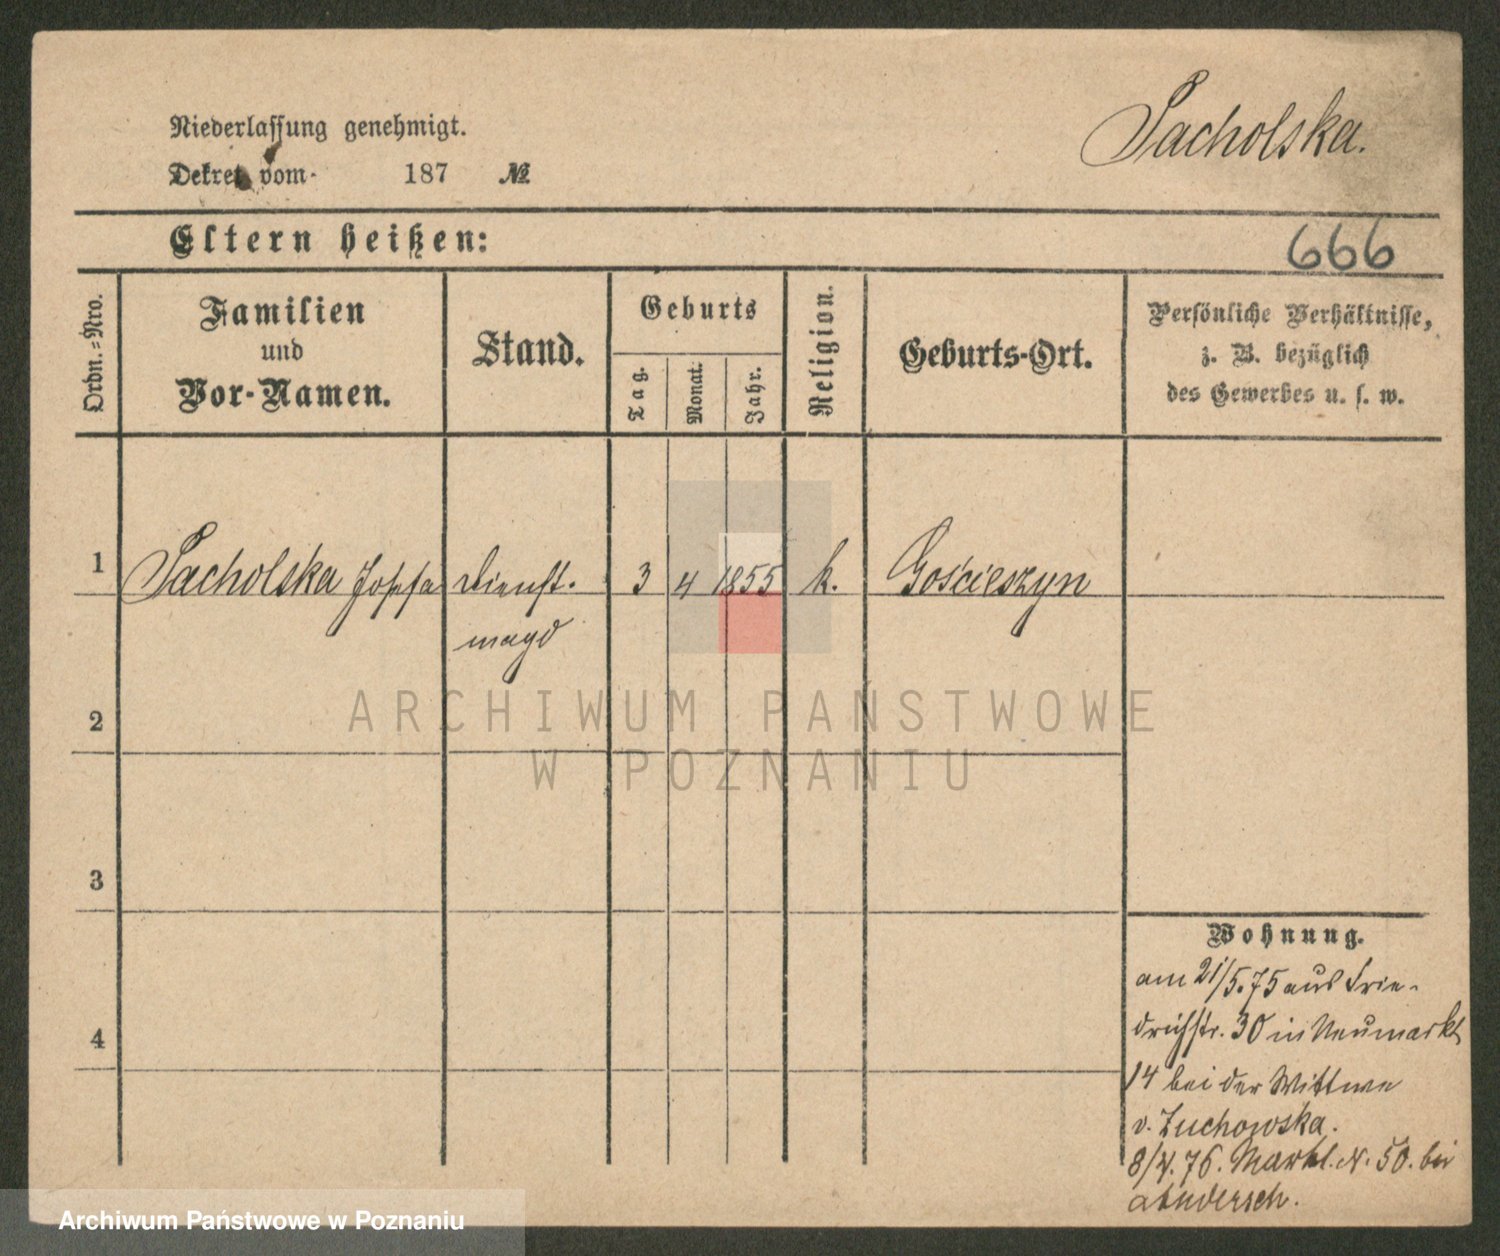 Pacholska.
Niederlassung genehmigt.
Dekret vom 187 №
Eltern heißen:
666
Ordn.-Nro.
Familien
und
Vor-Namen.
Stand.
Geburts
Tag.
Monat.
Jahr.
Religion.
Geburts-Ort.
Persönliche Verhältnisse,
z. B. bezüglich
des Gewerbes u. s. w.
1 Pacholska Josefa Dienst- 3 4 1855 k. Gościeszyn
magd
2
3
4
Wohnung.
am 21/5.75 aus Frie-
drichstr. 30 in Neumarkt
14 bei der Wittwe
v. Zuchowska.
8/4.76. Markt. N. 50. bei
ARCHIWUM PAŃSTWOWE
W POZNANIU
Archiwum Państwowe w Poznaniu